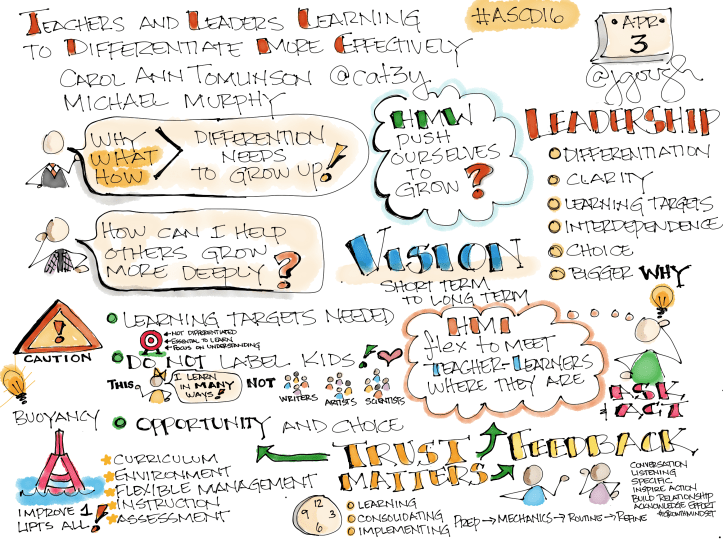 TEACHERS AND LEADERS LEARNING
TO DIFFERENTIATE MORE EFFECTIVELY
CAROL ANN TOMLINSON @cat3y
MICHAEL MURPHY
#ASCD16
APR
3
@jgough
WHY
WHAT
HOW
DIFFERENTION
NEEDS
TO GROW UP!
HMW
PUSH
OURSELVES
TO
GROW?
LEADERSHIP
DIFFERENTIATION
CLARITY
LEARNING TARGETS
INTERDEPENDENCE
CHOICE
BIGGER WHY
HOW CAN I HELP
OTHERS GROW
MORE DEEPLY?
VISION
SHORT TERM
TO LONG TERM
!
CAUTION
LEARNING TARGETS NEEDED
NOT DIFFERENTIATED
ESSENTIAL TO LEARN
FOCUS ON UNDERSTANDING
DO NOT LABEL KIDS!
THIS
I LEARN
IN MANY
WAYS!
NOT
WRITERS
ARTISTS
SCIENTISTS
OPPORTUNITY AND CHOICE
HMI
flex TO MEET
TEACHER-LEARNERS
WHERE THEY ARE
ASK
ACT
BUOYANCY
IMPROVE 1
LIFTS ALL!
CURRICULUM
ENVIRONMENT
FLEXIBLE MANAGEMENT
INSTRUCTION
ASSESSMENT
TRUST
MATTERS
12
3
6
9
LEARNING
CONSOLIDATING
IMPLEMENTING
PREP → MECHANICS → ROUTINE → REFINE
FEEDBACK
CONVERSATION
LISTENING
SPECIFIC
INSPIRE ACTION
BUILD RELATIONSHIP
ACKNOWLEDGE EFFORT
#GROWTHMINDSET